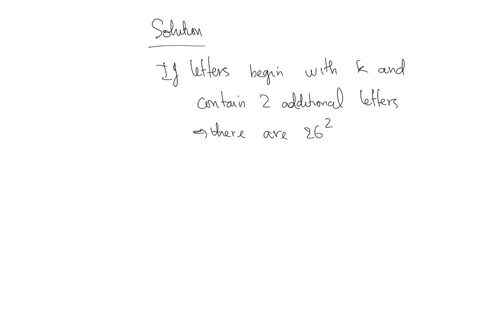 Solution
If letters begin with k and
contain 2 additional letters
→ there are 26²